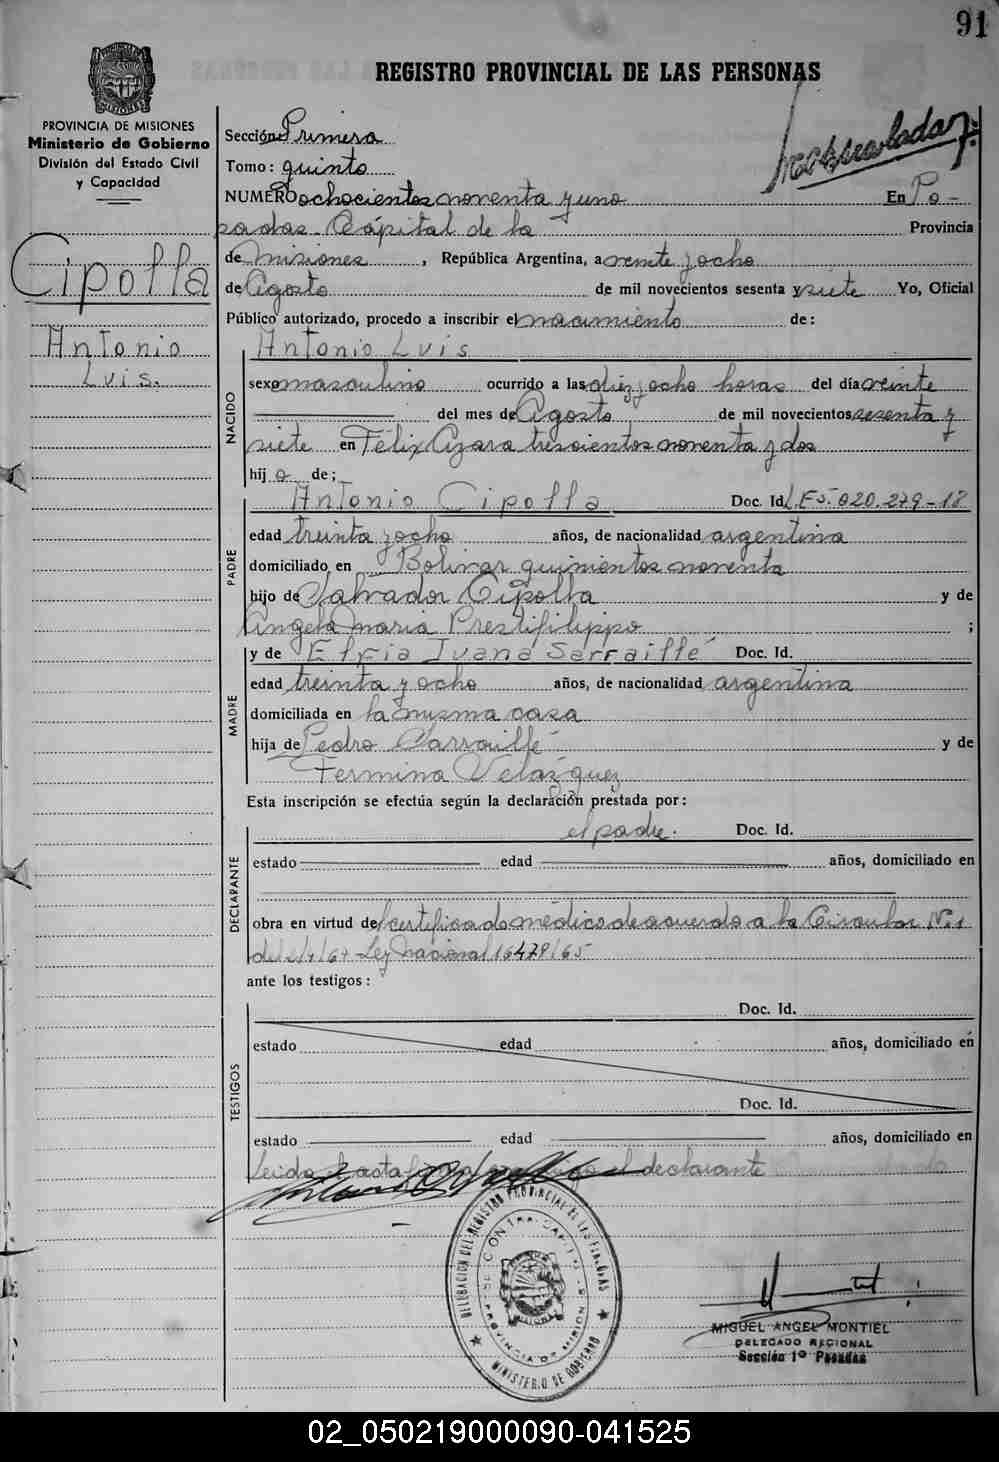 91
REGISTRO PROVINCIAL DE LAS PERSONAS
PROVINCIA DE MISIONES
Ministerio de Gobierno
División del Estado Civil
y Capacidad
Cipolla
Antonio
Luis.
Sección: Primera
Tomo: quinto
NUMERO ochocientos noventa y uno En Po-
sadas - Cápital de la Provincia
de Misiones, República Argentina, a veinte y ocho
de Agosto de mil novecientos sesenta y siete Yo, Oficial
Público autorizado, procedo a inscribir el nacimiento de:
NACIDO
Antonio Luis
sexo masculino ocurrido a las diez y ocho horas del día veinte
del mes de Agosto de mil novecientos sesenta y
siete en Félix Azara trescientos noventa y dos
hijo de;
PADRE
Antonio Cipolla Doc. Id. L.E. 5.020.279-18
edad treinta y ocho años, de nacionalidad argentina
domiciliado en Bolivar quinientos noventa
hijo de Salvador Cipolla y de
Angela Maria Prestifilippo;
MADRE
y de Elfia Juana Sarraillé Doc. Id.
edad treinta y ocho años, de nacionalidad argentina
domiciliada en la misma casa
hija de Pedro Sarraillé y de
Fermina Velazquez
Esta inscripción se efectúa según la declaración prestada por:
DECLARANTE
el padre. Doc. Id.
estado edad años, domiciliado en
obra en virtud de certificado médico de acuerdo a la Circular Nº1
Ley Nacional 16478/65
ante los testigos:
TESTIGOS
Doc. Id.
estado edad años, domiciliado en
Doc. Id.
estado edad años, domiciliado en
Leida el acta el declarante
DELEGACION DEL REGISTRO PROVINCIAL DE LAS PERSONAS
PROVINCIA DE MISIONES
MINISTERIO DE GOBIERNO
MIGUEL ANGEL MONTIEL
DELEGADO REGIONAL
Sección 1º Posadas
02_050219000090-041525